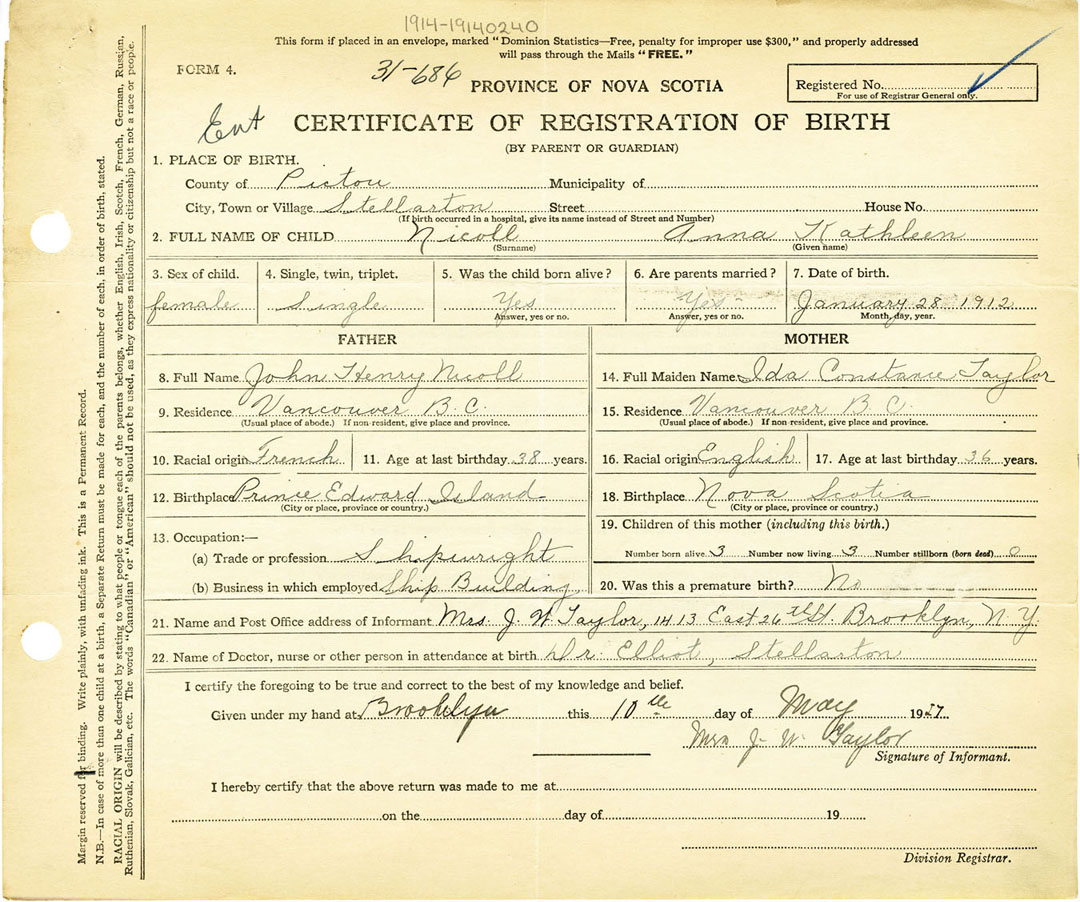 1914-19140240
This form if placed in an envelope, marked "Dominion Statistics—Free, penalty for improper use $300," and properly addressed
will pass through the Mails "FREE."
FORM 4.
31-686
PROVINCE OF NOVA SCOTIA
Registered No.
For use of Registrar General only.
Ent
CERTIFICATE OF REGISTRATION OF BIRTH
(BY PARENT OR GUARDIAN)
1. PLACE OF BIRTH.
County of Pictou Municipality of
City, Town or Village Stellarton Street House No.
(If birth occurred in a hospital, give its name instead of Street and Number)
2. FULL NAME OF CHILD Nicoll Anna Kathleen
(Surname) (Given name)
3. Sex of child. 4. Single, twin, triplet. 5. Was the child born alive? 6. Are parents married? 7. Date of birth.
female Single Yes Yes January 28 1912
Answer, yes or no. Answer, yes or no. Month, day, year.
FATHER MOTHER
8. Full Name John Henry Nicoll 14. Full Maiden Name Ida Constance Taylor
9. Residence Vancouver B.C. 15. Residence Vancouver B C.
(Usual place of abode.) If non-resident, give place and province. (Usual place of abode.) If non-resident, give place and province.
10. Racial origin French 11. Age at last birthday 38 years. 16. Racial origin English 17. Age at last birthday 36 years.
12. Birthplace Prince Edward Island 18. Birthplace Nova Scotia
(City or place, province or country.) (City or place, province or country.)
13. Occupation:— 19. Children of this mother (including this birth.)
(a) Trade or profession Shipwright Number born alive 3 Number now living 3 Number stillborn (born dead) 0
(b) Business in which employed Ship Building 20. Was this a premature birth? No
21. Name and Post Office address of Informant Mrs. J. W. Taylor, 1413 East 26 th St. Brooklyn, N. Y.
22. Name of Doctor, nurse or other person in attendance at birth Dr. Elliot, Stellarton
I certify the foregoing to be true and correct to the best of my knowledge and belief.
Given under my hand at Brooklyn this 10th day of May 1927.
Mrs J. W. Taylor
Signature of Informant.
I hereby certify that the above return was made to me at
on the day of 19
Division Registrar.
Margin reserved for binding. Write plainly, with unfading ink. This is a Permanent Record.
N.B.—In case of more than one child at a birth, a Separate Return must be made for each, and the number of each, in order of birth, stated.
RACIAL ORIGIN will be described by stating to what people or tongue each of the parents belongs, whether English, Irish, Scotch, French, German, Russian,
Ruthenian, Slovak, Galician, etc. The words "Canadian" or "American" should not be used, as they express nationality or citizenship but not a race or people.